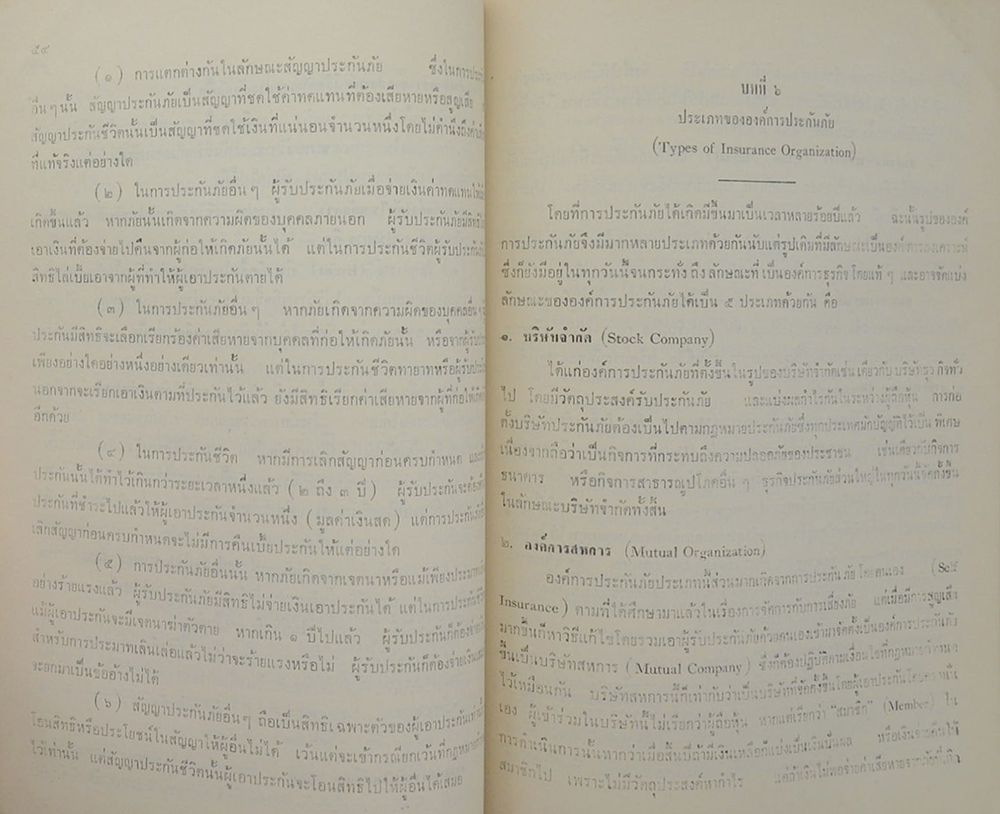 ๕๙
(๑) การแตกต่างกันในลักษณะสัญญาประกันภัย ซึ่งในการ
อื่นๆนั้น สัญญาประกันภัยเป็นสัญญาที่ชดใช้ค่าทดแทนที่ต้องเสียหายหรือสูญเสีย
สัญญาประกันชีวิตนั้นเป็นสัญญาที่ชดใช้เงินที่แน่นอนจำนวนหนึ่งโดยไม่คำนึงถึง
ที่แท้จริงแต่อย่างใด
(๒) ในการประกันภัยอื่นๆ ผู้รับประกันภัยเมื่อจ่ายเงินค่าทดแทน
เกิดขึ้นแล้ว หากภัยนั้นเกิดจากความผิดของบุคคลภายนอก ผู้รับประกันภัยมีสิทธิ
เอาเงินที่ต้องจ่ายไปคืนจากผู้ก่อให้เกิดภัยนั้นได้ แต่ในการประกันชีวิตผู้รับประกัน
สิทธิไล่เบี้ยเอาจากผู้ที่ทำให้ผู้เอาประกันตายได้
(๓) ในการประกันภัยอื่นๆ หากภัยเกิดจากความผิดของบุคคลอื่น
ประกันมีสิทธิจะเลือกเรียกร้องค่าเสียหายจากบุคคลที่ก่อให้เกิดภัยนั้น หรือจากผู้รับ
เพียงอย่างใดอย่างหนึ่งอย่างเดียวเท่านั้น แต่ในการประกันชีวิตทายาทหรือผู้รับ
นอกจากจะเรียกเอาเงินตามที่ประกันไว้แล้ว ยังมีสิทธิเรียกค่าเสียหายจากผู้ที่ก่อให้
อีกด้วย
(๔) ในการประกันชีวิต หากมีการเลิกสัญญาก่อนครบกำหนด
ประกันนั้นได้ทำไว้เกินกว่าระยะเวลาหนึ่งแล้ว (๒ ถึง ๓ ปี) ผู้รับประกันจะต้อง
ประกันที่ชำระไปแล้วให้ผู้เอาประกันจำนวนหนึ่ง (มูลค่าเงินสด) แต่การประกัน
เลิกสัญญาก่อนครบกำหนดจะไม่มีการคืนเบี้ยประกันให้แต่อย่างใด
(๕) การประกันภัยอื่นนั้น หากภัยเกิดจากเจตนาหรือแม้เพียงประมาท
อย่างร้ายแรงแล้ว ผู้รับประกันภัยมีสิทธิไม่จ่ายเงินเอาประกันได้ แต่ในการประกันชีวิต
แม้ผู้เอาประกันจะมีเจตนาฆ่าตัวตาย หากเกิน ๑ ปีไปแล้ว ผู้รับประกันก็ต้องจ่าย
สำหรับการประมาทเลินเล่อแล้วไม่ว่าจะร้ายแรงหรือไม่ ผู้รับประกันก็ต้องจ่ายเงิน
จะยกมาเป็นข้ออ้างไม่ได้
(๖) สัญญาประกันภัยอื่นๆ ถือเป็นสิทธิเฉพาะตัวของผู้เอาประกันเท่านั้น
โอนสิทธิหรือประโยชน์ในสัญญาให้ผู้อื่นไม่ได้ เว้นแต่จะเข้ากรณียกเว้นที่กฎหมาย
ไว้เท่านั้น แต่สัญญาประกันชีวิตนั้นผู้เอาประกันจะโอนสิทธิไปให้ผู้อื่นได้เสมอ
บทที่ ๖
ประเภทขององค์การประกันภัย
(Types of Insurance Organization)
โดยที่การประกันภัยได้เกิดมีขึ้นมาเป็นเวลาหลายร้อยปีแล้ว ฉะนั้นรูปขององค์
การประกันภัยจึงมีมากหลายประเภทด้วยกันนับแต่รูปเดิมที่มีลักษณะเป็นองค์การสงเคราะห์
ซึ่งก็ยังมีอยู่ในทุกวันนี้จนกระทั่ง ถึง ลักษณะที่ เป็นองค์การธุรกิจ โดยแท้ ๆ และอาจจัดแบ่ง
ลักษณะขององค์การประกันภัยได้เป็น ๕ ประเภทด้วยกัน คือ
๑. บริษัทจำกัด (Stock Company)
ได้แก่องค์การประกันภัยที่ตั้งขึ้นในรูปของบริษัทจำกัดเช่นเดียวกับ บริษัทธุรกิจทั่ว
ไป โดยมีวัตถุประสงค์รับประกันภัย และแบ่งผลกำไรกันในระหว่างผู้ถือหุ้น การก่อ
ตั้งบริษัทประกันภัยต้องเป็นไปตามกฎหมายประกันภัยซึ่งทุกประเทศมักบัญญัติไว้เป็น พิเศษ
เนื่องจากถือว่าเป็นกิจการที่กระทบถึงความปลอดภัยของประชาชน เช่นเดียวกับกิจการ
ธนาคาร หรือกิจการสาธารณูปโภคอื่น ๆ ธุรกิจประกันภัยส่วนใหญ่ในทุกวันนี้จัดตั้งขึ้น
ในลักษณะบริษัทจำกัดทั้งสิ้น
๒. องค์การสหการ (Mutual Organization)
องค์การประกันภัยประเภทนี้ส่วนมากเกิดจากการประกันภัยโดยตนเอง (Self
Insurance) ตามที่ได้ศึกษามาแล้วในเรื่องการจัดการกับการเสี่ยงภัย แต่เมื่อมีการสูญเสีย
มากขึ้นก็หาวิธีแก้ไขโดยรวมเอาผู้รับประกันภัยด้วยตนเองเข้ามาจัดตั้งเป็นองค์การประกันภัย
ขึ้นเป็นบริษัทสหการ (Mutual Company) ซึ่งก็ต้องปฏิบัติตามเงื่อนไขที่กฎหมายกำหนด
ไว้เหมือนกัน บริษัทสหการนี้ก็เท่ากับว่าเป็นบริษัทที่จัดตั้งขึ้นโดยผู้เอาประกัน
เอง ผู้เข้าร่วมในบริษัทนี้ไม่เรียกว่าผู้ถือหุ้น หากแต่เรียกว่า "สมาชิก" (Member) ใน
การดำเนินการนั้นหากว่าเมื่อสิ้นปีถ้ามีเงินเหลือก็แบ่งเป็นเงินปันผล หรือเงิน
สมาชิกไป เพราะไม่มีวัตถุประสงค์หากำไร แต่ถ้าเงินไม่พอจ่ายค่าเสียหาย